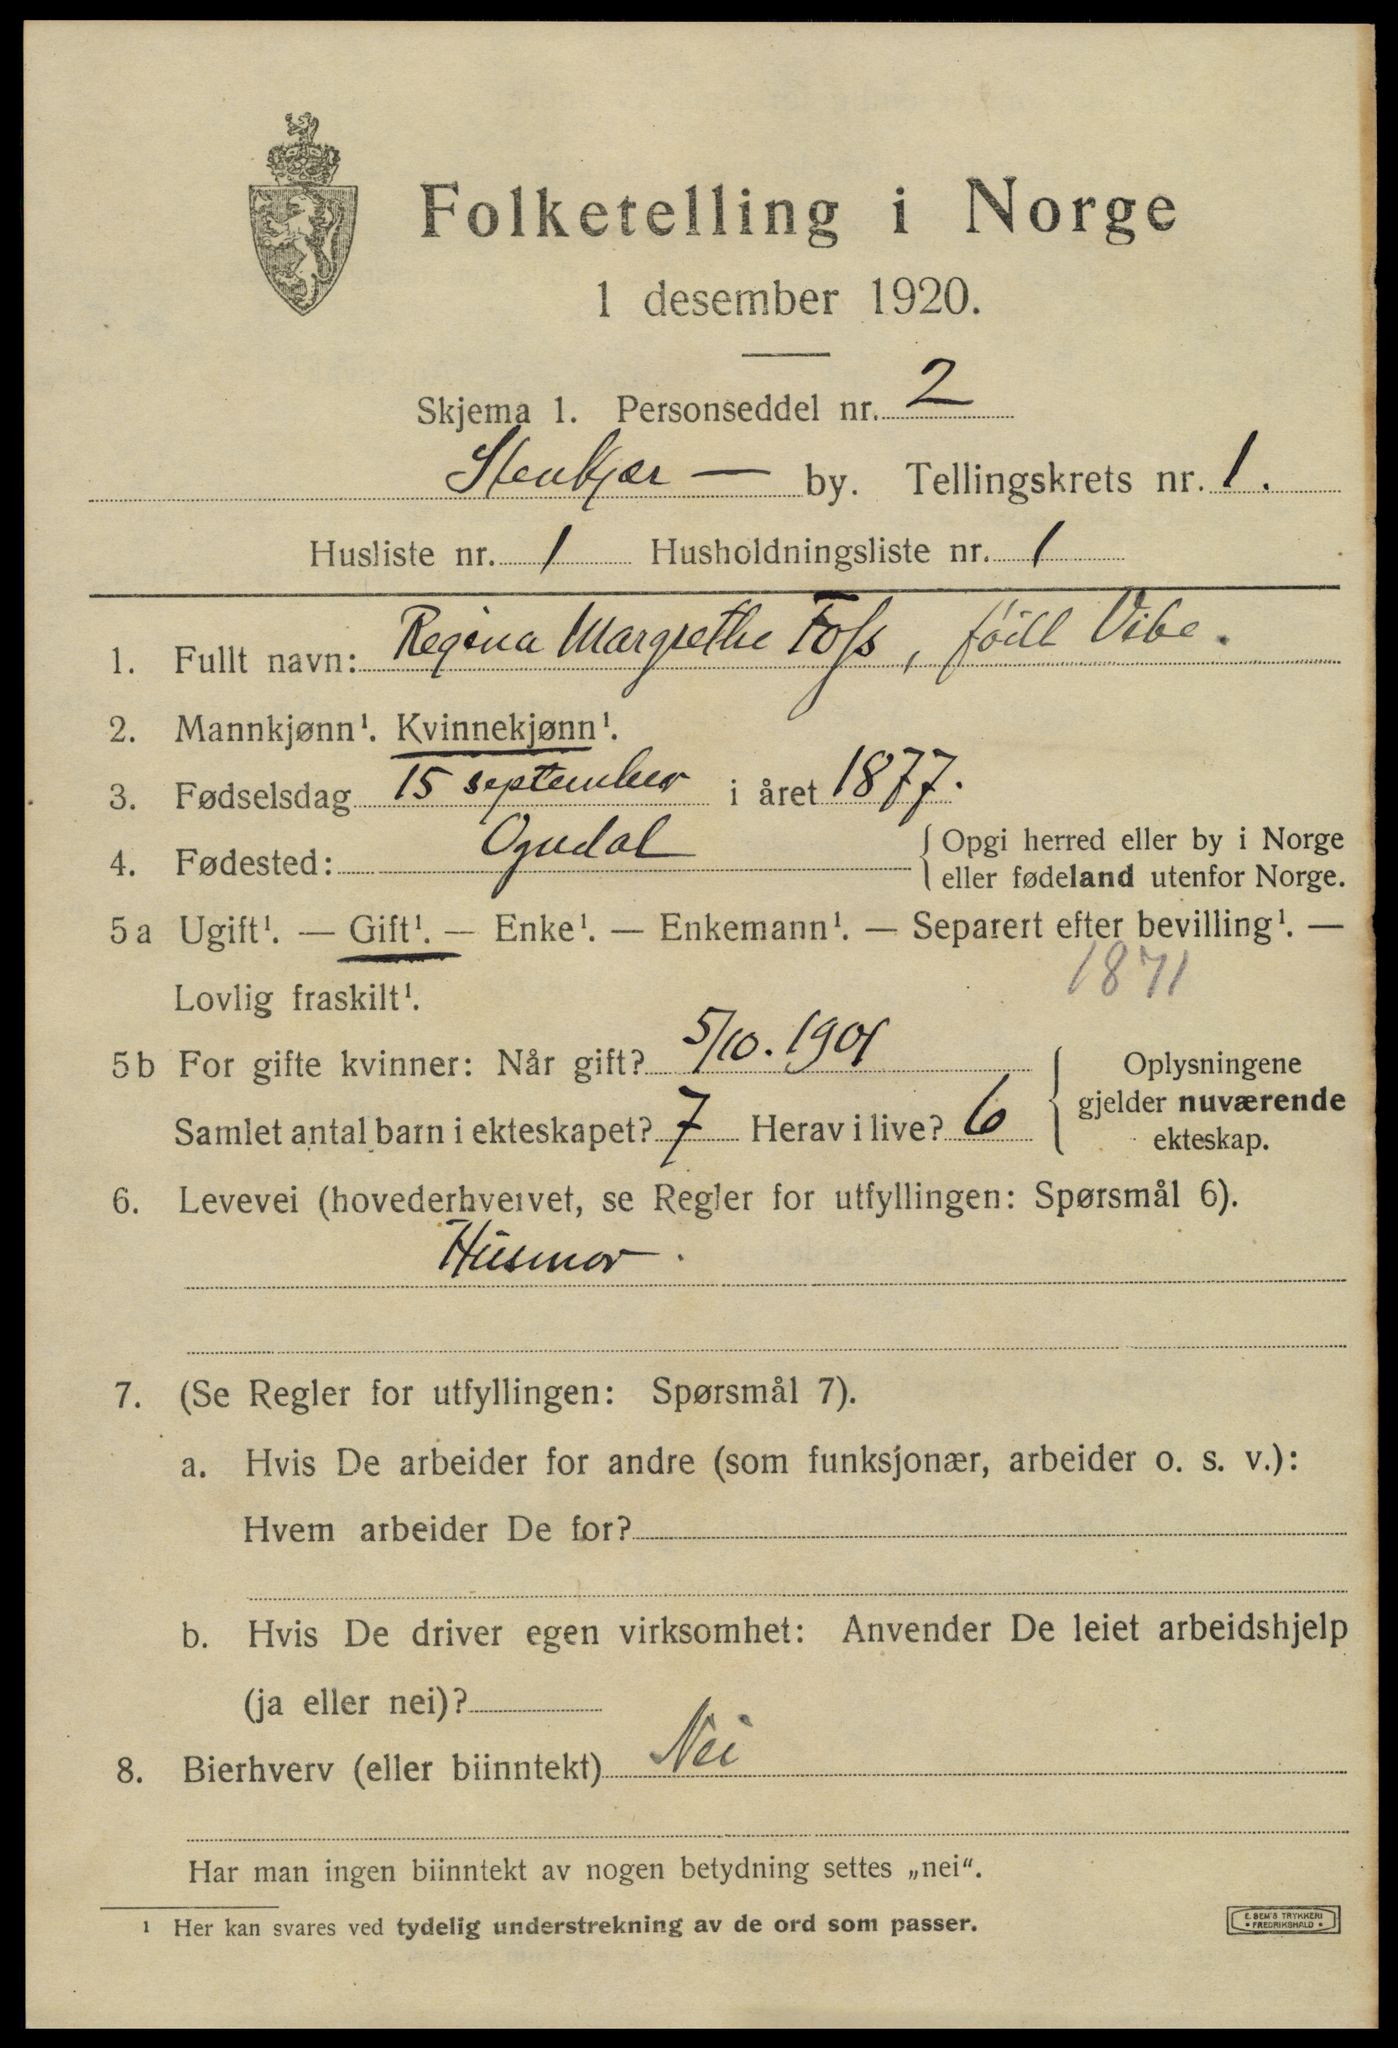 Folketelling i Norge
1 desember 1920.
Skjema 1. Personseddel nr. 2
Stenkjær — by. Tellingskrets nr. 1.
Husliste nr. 1 Husholdningsliste nr. 1
1. Fullt navn: Regina Margrethe Foss, född Vibe.
2. Mannkjønn¹. Kvinnekjønn¹.
3. Fødselsdag 15 september i året 1877.
4. Fødested: Ogndal { Opgi herred eller by i Norge
eller fødeland utenfor Norge.
5 a Ugift¹. — Gift¹. — Enke¹. — Enkemann¹. — Separert efter bevilling¹. —
Lovlig fraskilt¹. 1871
5 b For gifte kvinner: Når gift? 5/10. 1901
Samlet antal barn i ekteskapet? 7 Herav i live? 6
{ Oplysningene
gjelder nuværende
ekteskap.
6. Levevei (hovederhvervet, se Regler for utfyllingen: Spørsmål 6).
Husmor.
7. (Se Regler for utfyllingen: Spørsmål 7).
a. Hvis De arbeider for andre (som funksjonær, arbeider o. s. v.):
Hvem arbeider De for?
b. Hvis De driver egen virksomhet: Anvender De leiet arbeidshjelp
(ja eller nei)?
8. Bierhverv (eller biinntekt) Nei
Har man ingen biinntekt av nogen betydning settes „nei“.
¹ Her kan svares ved tydelig understrekning av de ord som passer.
E. SEM'S TRYKKERI
• FREDRIKSHALD •